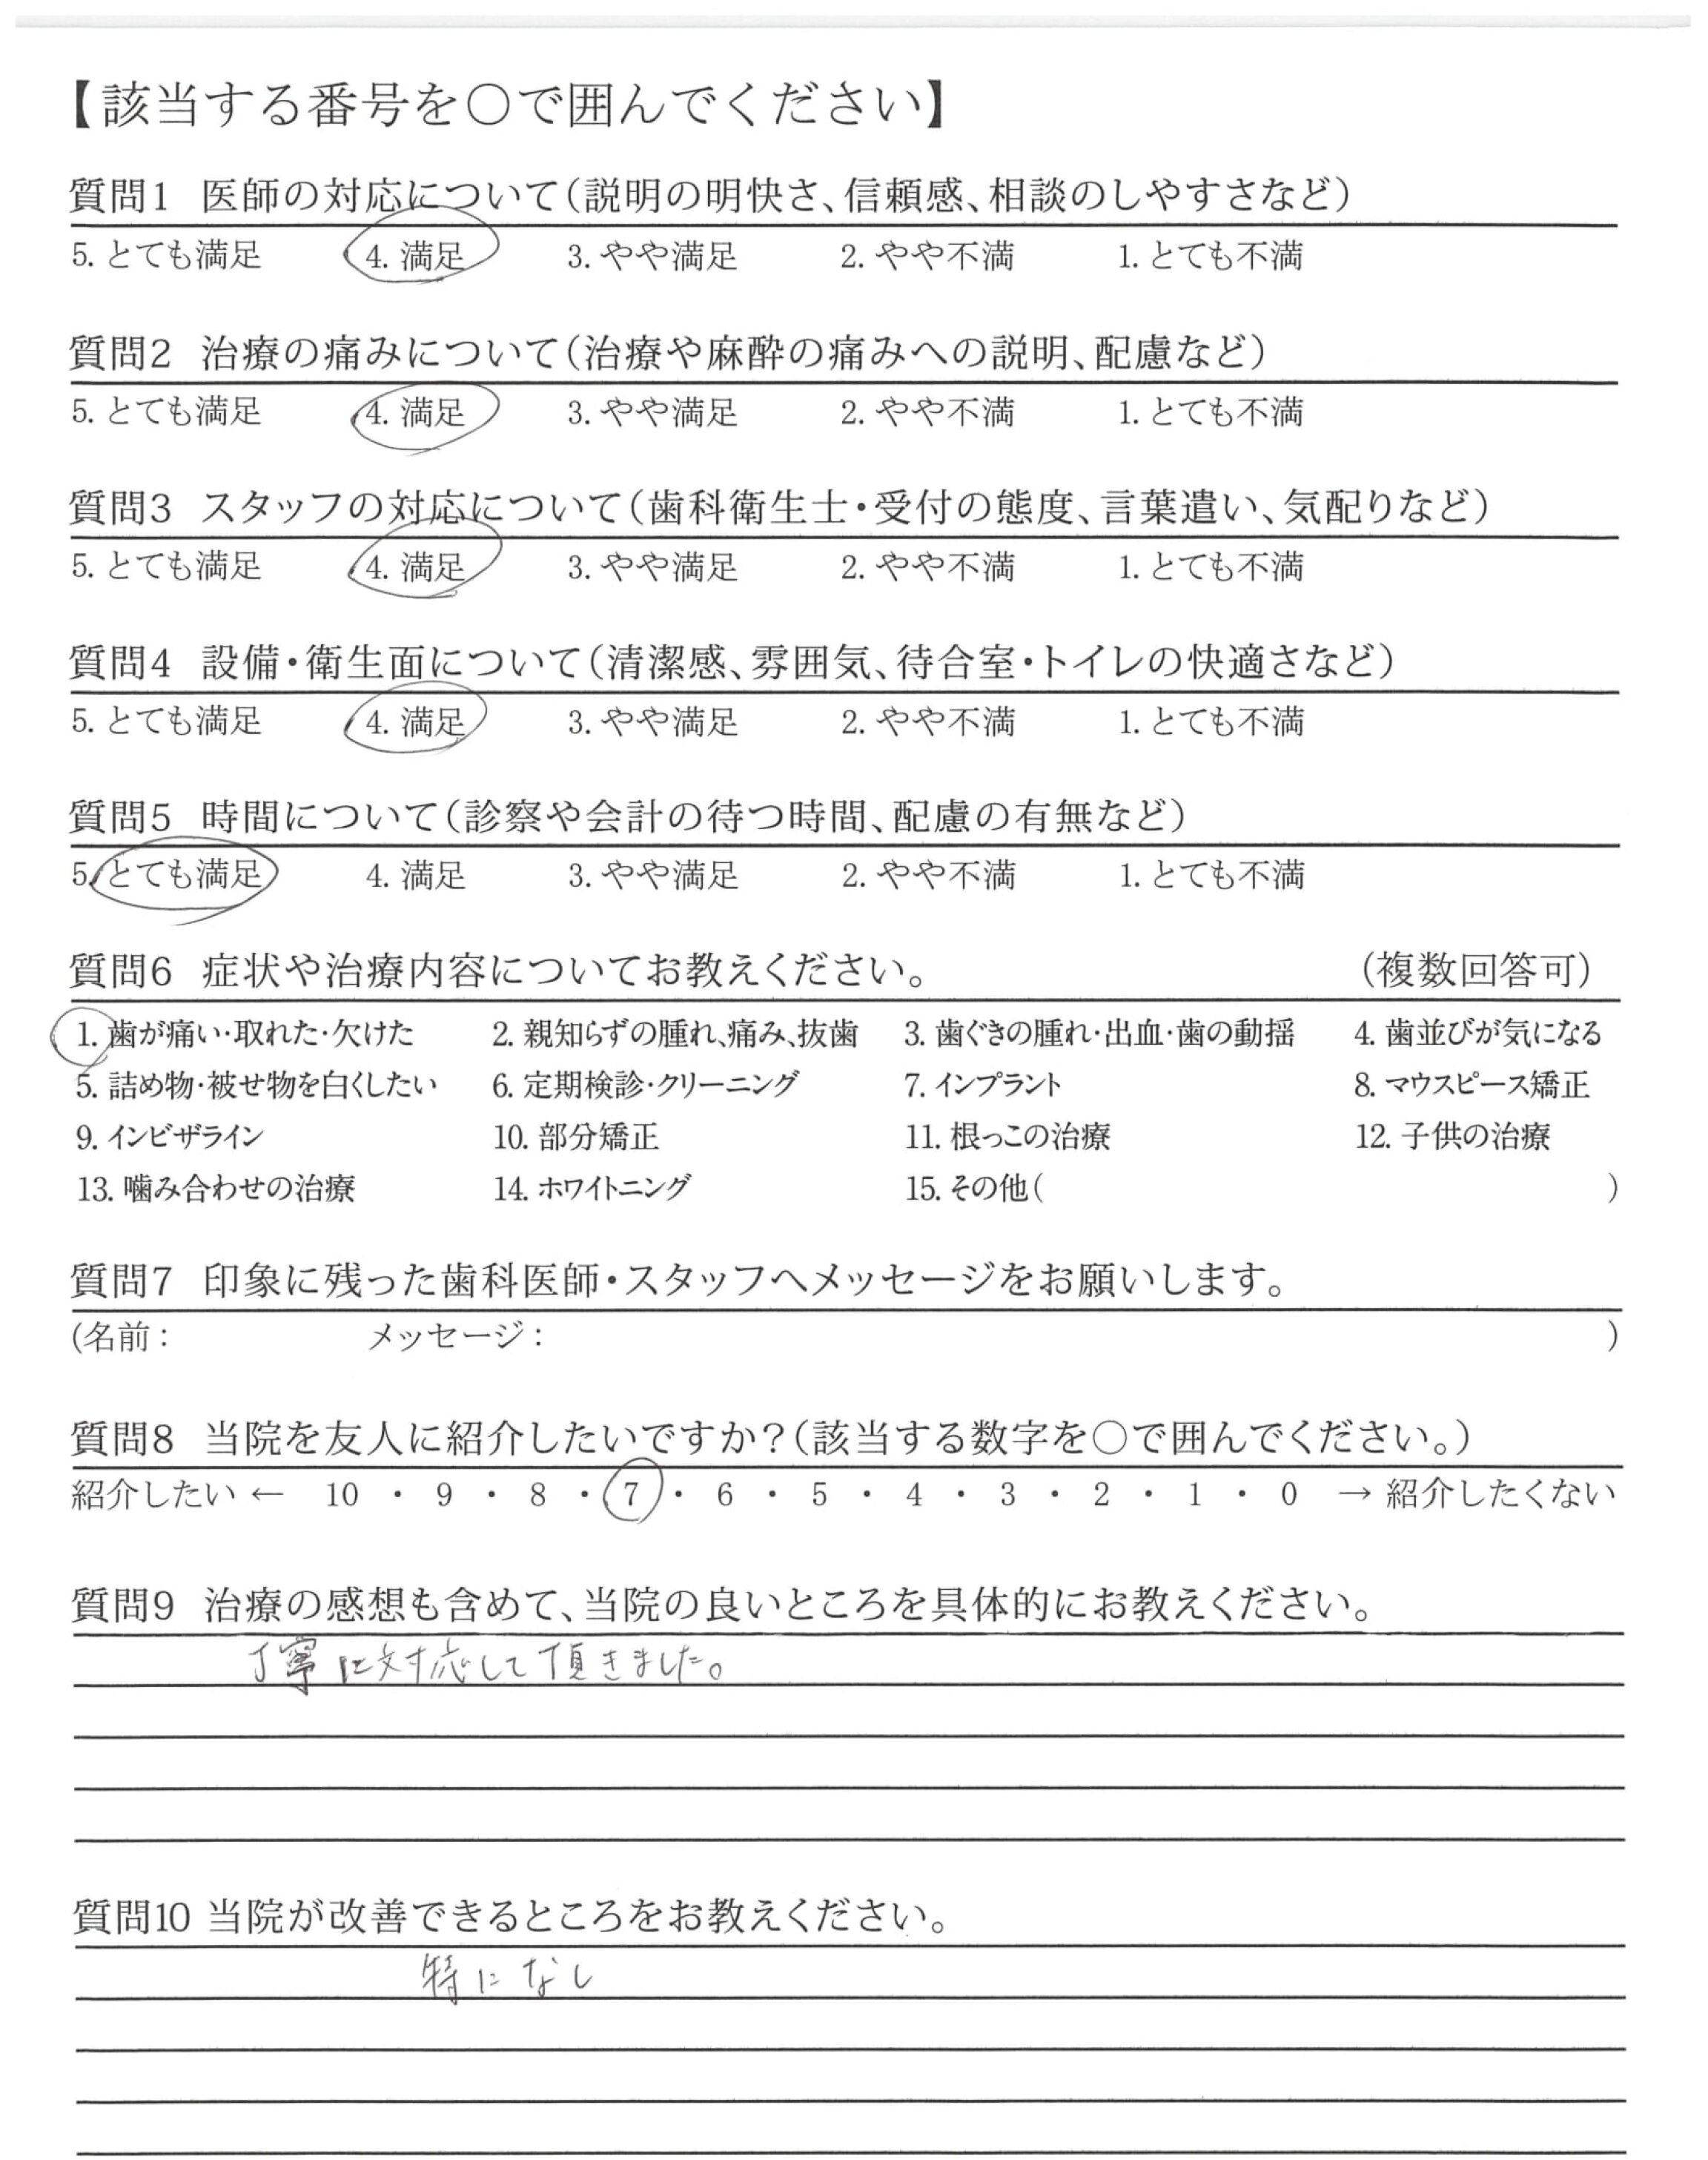 【該当する番号を〇で囲んでください】
質問1 医師の対応について(説明の明快さ、信頼感、相談のしやすさなど)
5. とても満足 4. 満足 3. やや満足 2. やや不満 1. とても不満
質問2 治療の痛みについて(治療や麻酔の痛みへの説明、配慮など)
5. とても満足 4. 満足 3. やや満足 2. やや不満 1. とても不満
質問3 スタッフの対応について(歯科衛生士・受付の態度、言葉遣い、気配りなど)
5. とても満足 4. 満足 3. やや満足 2. やや不満 1. とても不満
質問4 設備・衛生面について(清潔感、雰囲気、待合室・トイレの快適さなど)
5. とても満足 4. 満足 3. やや満足 2. やや不満 1. とても不満
質問5 時間について(診察や会計の待つ時間、配慮の有無など)
5. とても満足 4. 満足 3. やや満足 2. やや不満 1. とても不満
質問6 症状や治療内容についてお教えください。 (複数回答可)
1. 歯が痛い・取れた・欠けた 2. 親知らずの腫れ、痛み、抜歯 3. 歯ぐきの腫れ・出血・歯の動揺 4. 歯並びが気になる
5. 詰め物・被せ物を白くしたい 6. 定期検診・クリーニング 7. インプラント 8. マウスピース矯正
9. インビザライン 10. 部分矯正 11. 根っこの治療 12. 子供の治療
13. 噛み合わせの治療 14. ホワイトニング 15. その他( )
質問7 印象に残った歯科医師・スタッフへメッセージをお願いします。
(名前: メッセージ: )
質問8 当院を友人に紹介したいですか?(該当する数字を〇で囲んでください。)
紹介したい ← 10 ・ 9 ・ 8 ・ 7 ・ 6 ・ 5 ・ 4 ・ 3 ・ 2 ・ 1 ・ 0 → 紹介したくない
質問9 治療の感想も含めて、当院の良いところを具体的にお教えください。
丁寧に対応して頂きました。
質問10 当院が改善できるところをお教えください。
特になし